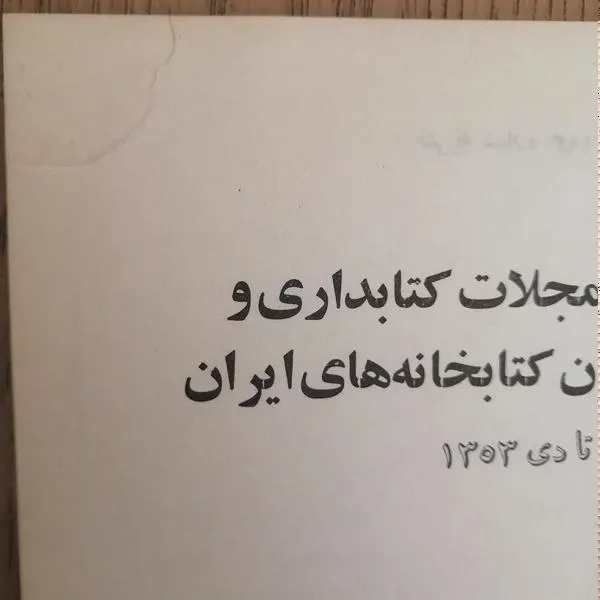 مجلات کتابداری و
ن کتابخانه‌های ایران
تا دی ۱۳۵۳